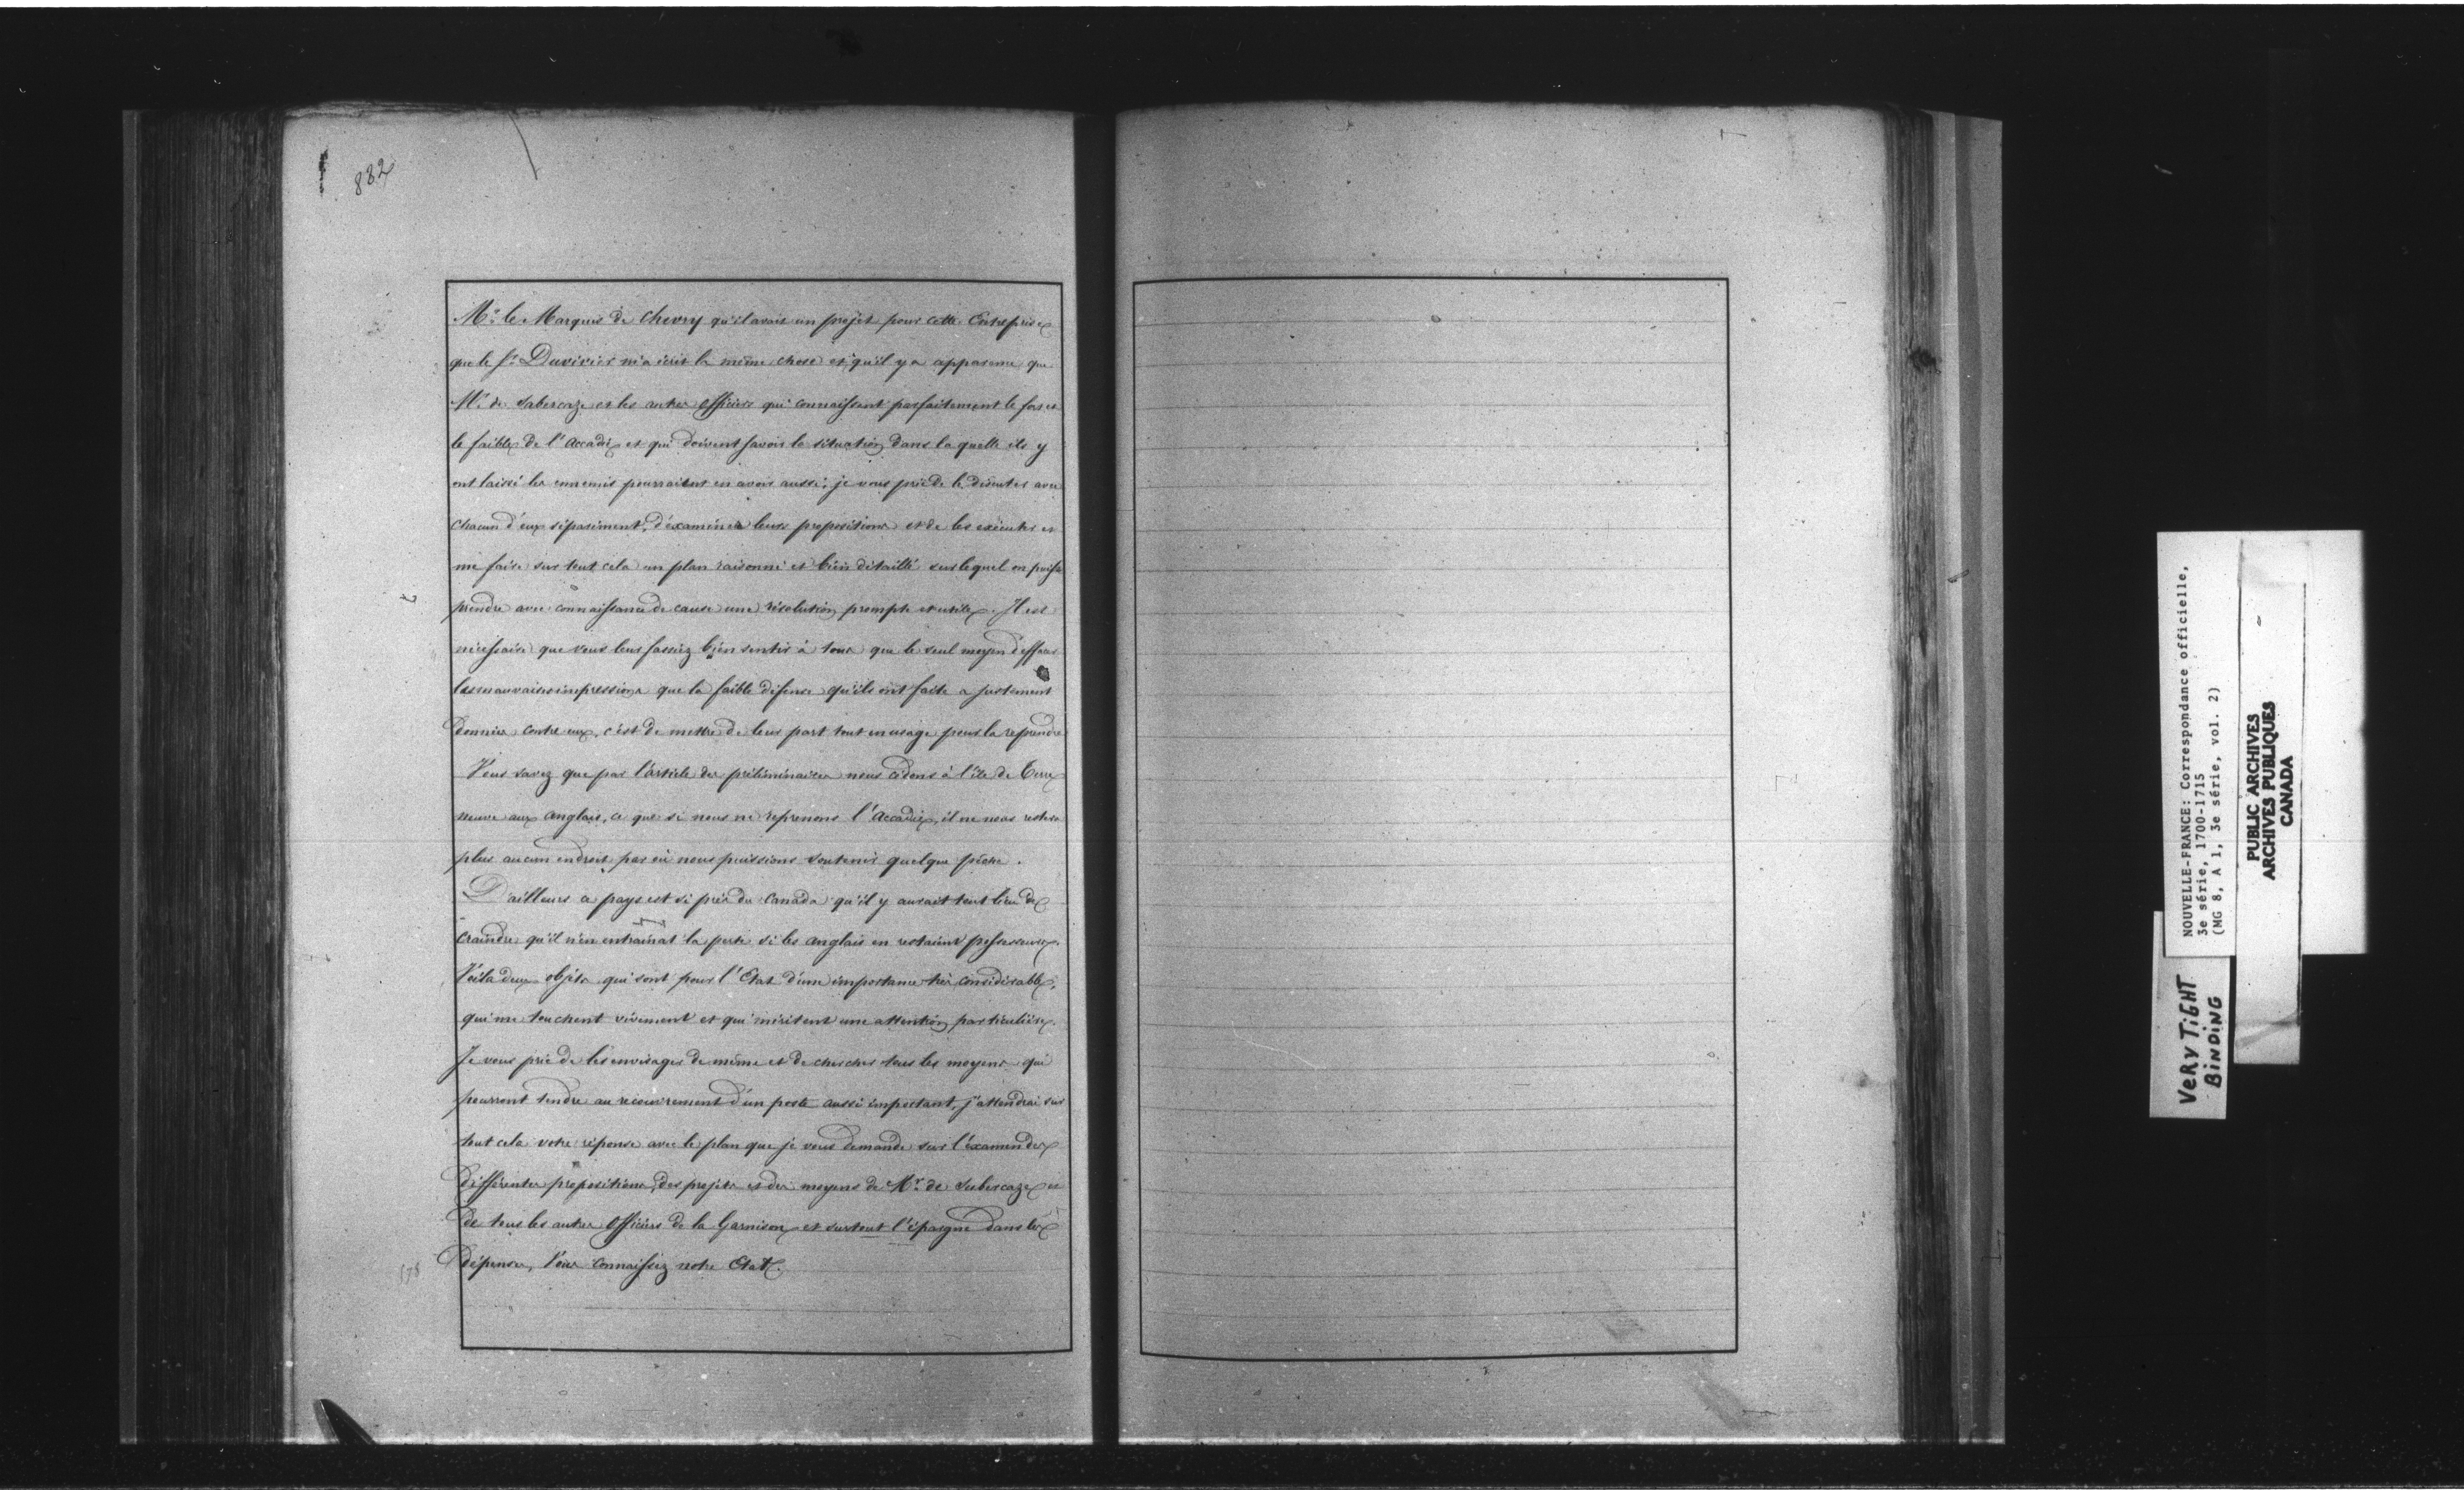 882
Mr. le Marquis de Chevry qu'il avait un projet pour cette Entreprise
que le Sr. Duvivier m'a écrit la même chose et qu'il y a apparence que
Mr. de Subercaze et les autres officiers qui connaissent parfaitement le fort et
le faible de l'Accadie et qui doivent savoir la situation dans la quelle ils y
ont laissé les ennemis pourraient en avoir aussi; je vous prie de le discuter avec
chacun d'eux séparément, d'éxaminer leurs propositions et de les exécuter et
me faire sur tout cela un plan raisonné et bien détaillé sur lequel on puisse
prendre avec connaissance de cause une résolution prompte et utile. Il est
nécessaire que vous leur fassiez bien sentir à tous que le seul moyen d'effacer
les mauvaises impressions que la faible défense qu'ils ont faite a justement
données contre eux, c'est de mettre de leur part tout en usage pour la reprendre
Vous savez que par l'article des préliminaires nous cédons à l'île de Terre
neuve aux anglais, ce que si nous ne reprenons l'Accadie, il ne nous restera
plus aucun endroit par où nous puissions soutenir quelque pêche.
D'ailleurs ce pays est si près du Canada qu'il y aurait tout lieu de
craindre qu'il n'en entraînat la perte si les anglais en restaient possesseurs.
Voila deux objets qui sont pour l'Etat d'une importance très considérable,
qui me touchent vivement et qui méritent une attention particulière.
Je vous prie de les envisager de même et de chercher tous les moyens qui
pourront tendre au recouvrement d'un poste aussi important, j'attendrai sur
tout cela votre réponse avec le plan que je vous demande sur l'éxamen des
différentes propositions, des projets et des moyens de Mr. de Subercaze et
de tous les autres officiers de la Garnison et surtout l'épargne dans les
dépenses, Vous connaissez notre Etat.
178
NOUVELLE-FRANCE: Correspondance officielle,
3e série, 1700-1715
(MG 8, A 1, 3e série, vol. 2)
PUBLIC ARCHIVES
ARCHIVES PUBLIQUES
CANADA
VERY TIGHT
BINDING